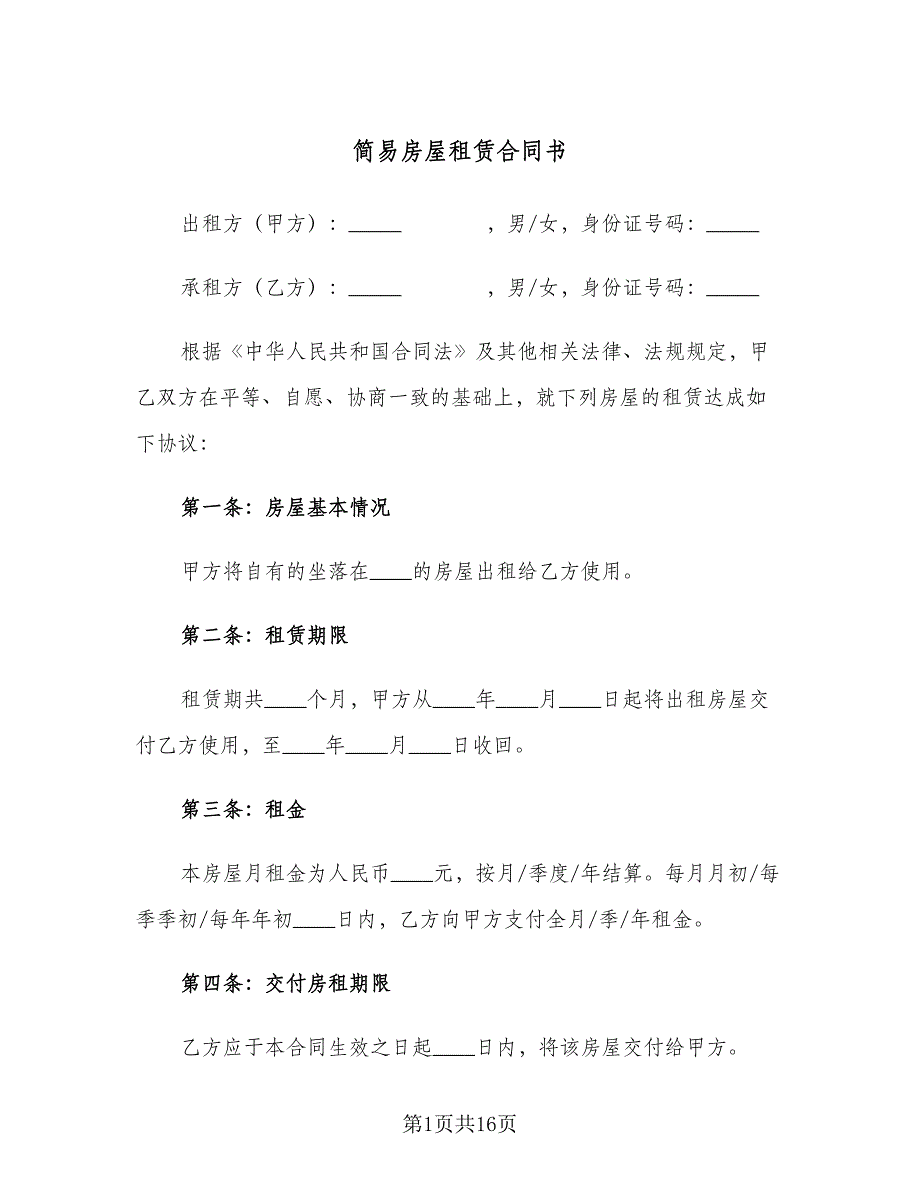 简易房屋租赁合同书
出租方（甲方）：_____　　　　，男/女，身份证号码：_____
承租方（乙方）：_____　　　　，男/女，身份证号码：_____
根据《中华人民共和国合同法》及其他相关法律、法规规定，甲
乙双方在平等、自愿、协商一致的基础上，就下列房屋的租赁达成如
下协议：
第一条：房屋基本情况
甲方将自有的坐落在____的房屋出租给乙方使用。
第二条：租赁期限
租赁期共____个月，甲方从____年____月____日起将出租房屋交
付乙方使用，至____年____月____日收回。
第三条：租金
本房屋月租金为人民币____元，按月/季度/年结算。每月月初/每
季季初/每年年初____日内，乙方向甲方支付全月/季/年租金。
第四条：交付房租期限
乙方应于本合同生效之日起____日内，将该房屋交付给甲方。
第1页共16页